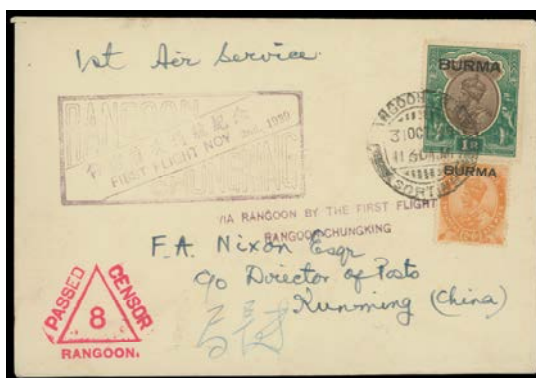 1st Air Service
RANGOON
FIRST FLIGHT NOV 2nd. 1939
CHUNGKING
BURMA
1R
RANGOON
31OCT
SORTING
BURMA
VIA RANGOON BY THE FIRST FLIGHT
RANGOON-CHUNGKING
F.A. Nixon Esqr
c/o Director of Posts
Kunming (China)
PASSED CENSOR
8
RANGOON.